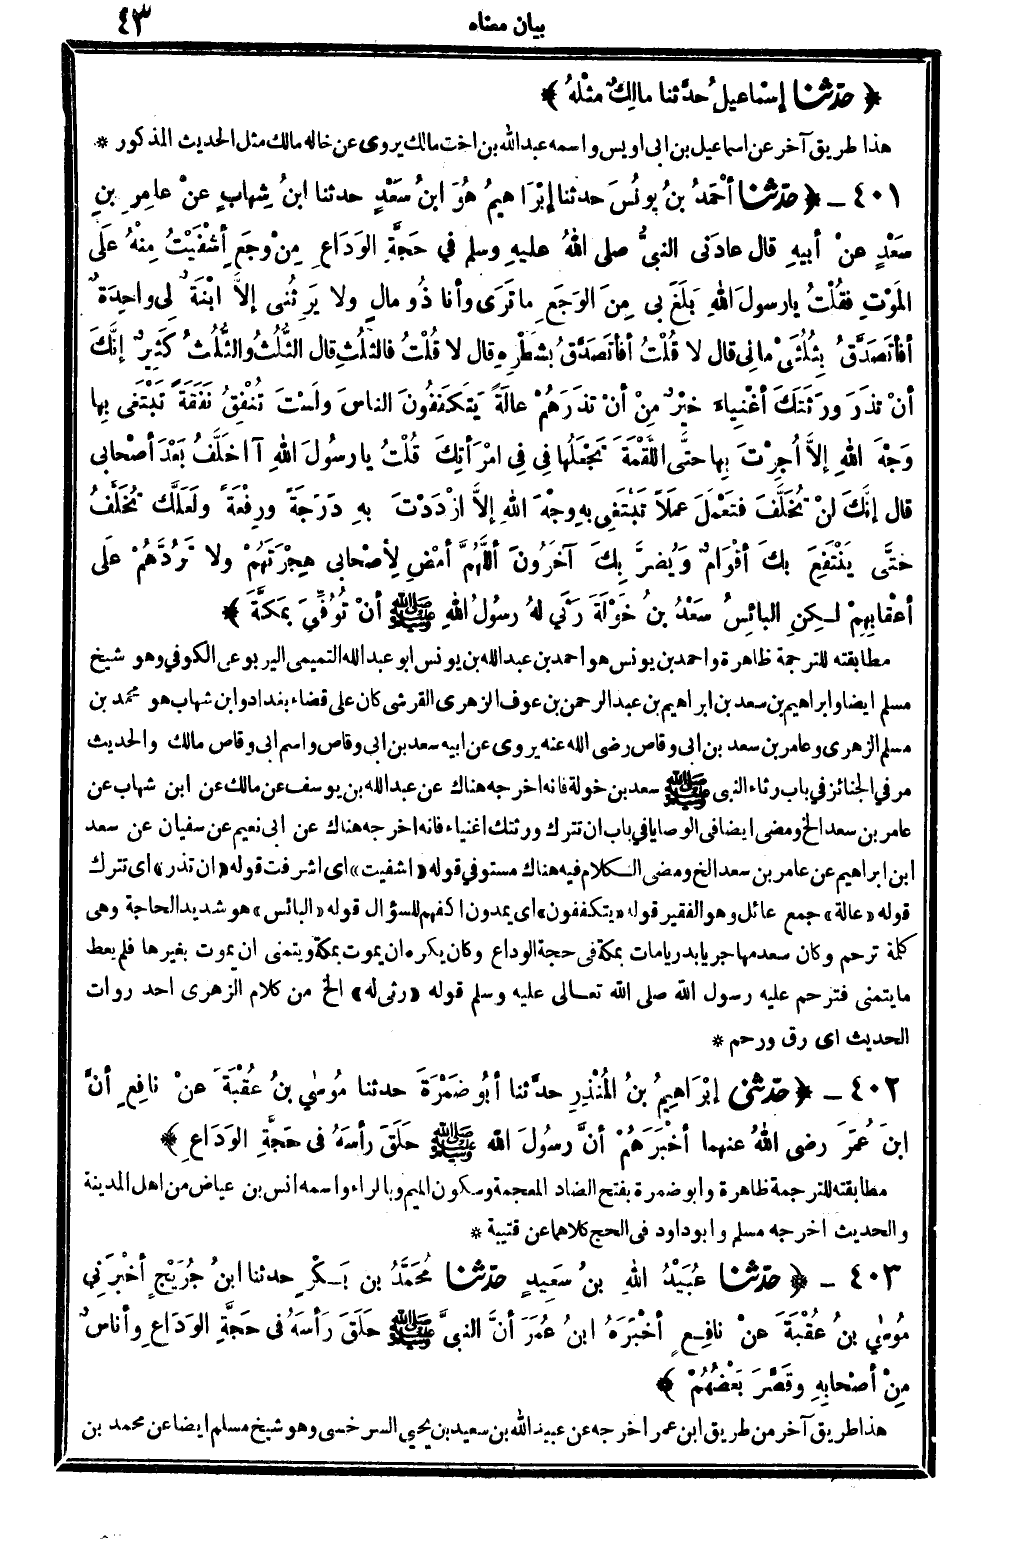 بيان معناه
٤٣
﴿ حَدَّثَنَا إِسْمَاعِيلُ حدَّثنا مالِكٌ مثْلهُ ﴾
هذا طريق آخر عن اسماعيل بن ابى اويس واسمه عبدالله بن اخت مالك يروى عن خاله مالك مثل الحديث المذكور *
٤٠١ - ﴿ حدَّثنا أحْمَدُ بنُ يونُسَ حدثنا إبْرَاهِيمُ هُوَ ابنُ سَعْدٍ حدثنا ابنُ شِهابٍ عنْ عامِرِ بنِ
سَعْدٍ عنْ أبيهِ قال عادَنى النبىُّ صلى اللهُ عليهِ وسلم في حَجَّةِ الوَدَاعِ مِنْ وجَعٍ أشْفَيْتُ مِنْهُ عَلَى
المَوْتِ فَقُلْتُ يارسولَ اللهِ بَلَغَ بى مِنَ الوَجَعِ ماتَرَى وأنا ذُو مالٍ ولا يَرِثُنى إلاَّ ابْنَةٌ لِى واحِدَةٌ
أفأتَصَدَّقُ بِثُلُثَىْ مالى قال لا قُلْتُ أفأتَصَدَّقُ بشَطْرِهِ قال لا قُلْتُ فالثلُثِ قال الثُّلُثُ والثُّلُثُ كَثِيرٌ إنَّكَ
أنْ تذَرَ ورَثَتَكَ أغْنِياءَ خيْرٌ مِنْ أنْ تذَرَهُمْ عالَةً يَتَكَفَّفُونَ الناسَ ولَسْتَ تُنْفِقُ نَفَقَةً تَبْتَغى بِها
وَجْهَ اللهِ إلاَّ أُجِرْتَ بِها حتَّى اللُّقْمَةَ تَجْعَلُها فِى فِى امْرَأتِكَ قُلْتُ يارسُولَ اللهِ آأخلَّفُ بَعْدَ أصْحابى
قال إنَّكَ لَنْ تُخَلَّفَ فتَعْمَلَ عمَلاً تَبْتَغِى بِهِ وجْهَ اللهِ إلاَّ ازْدَدْتَ بِهِ دَرَجَةً ورِفْعَةً ولَعَلَّكَ تُخَلَّفُ
حتَّى يَنْتَفِعَ بكَ أقْوَامٌ وَيُضَرَّ بِكَ آخَرُونَ أللَّهُمَّ أمْضِ لِأصْحابى هِجْرَتَهُمْ ولا تَرُدَّهُمْ عَلَى
أعْقابِهِمْ لـكِنِ البائِسُ سَعْدُ بنُ خَوْلَةَ رَثَى لهُ رسُولُ اللهِ ﷺ أنْ تُوُفِّىَ بِمَكَّةَ ﴾
مطابقته للترجمة ظاهرة واحمد بن يونس هو احمد بن عبدالله بن يونس ابو عبدالله التميمى اليربوعى الكوفي وهو شيخ
مسلم ايضا وابراهيم بن سعد بن ابراهيم بن عبدالرحمن بن عوف الزهرى القرشى كان على قضاء بغداد وابن شهاب هو محمد بن
مسلم الزهرى وعامر بن سعد بن ابى وقاص رضى الله عنه يروى عن ابيه سعد بن ابى وقاص واسم ابى وقاص مالك والحديث
مر في الجنائز في باب رثاء النبى ﷺ سعد بن خولة فانه اخرجه هناك عن عبدالله بن يوسف عن مالك عن ابن شهاب عن
عامر بن سعد الخ ومضى ايضا فى الوصايا في باب ان تترك ورثتك اغنياء فانه اخرجه هناك عن ابى نعيم عن سفيان عن سعد
ابن ابراهيم عن عامر بن سعد الخ ومضى الـكلام فيه هناك مستوفي قوله «اشفيت» اى اشرفت قوله «ان تذر» اى تترك
قوله «عالة» جمع عائل وهو الفقير قوله «يتكففون» اى يمدون اكفهم للسؤال قوله «البائس» هو شديد الحاجة وهى
كلمة ترحم وكان سعد مهاجريا بدريا مات بمكة فى حجة الوداع وكان يكره ان يموت بمكة ويتمنى ان يموت بغيرها فلم يعط
مايتمنى فترحم عليه رسول الله صلى الله تعـالى عليه وسلم قوله «رثى له» الخ من كلام الزهرى احد روات
الحديث اى رق ورحم *
٤٠٢ - ﴿ حدَّثنى إبْرَاهِيمُ بنُ المُنْذِرِ حدَّثنا أبُو ضَمْرَةَ حدثنا مُوسَى بنُ عُقْبَةَ عنْ نافِعٍ أنَّ
ابنَ عُمَرَ رضى اللهُ عنهما أخْبَرَهُمْ أنَّ رسُولَ اللهِ ﷺ حَلَقَ رأسَهُ فى حَجَّةِ الوَدَاعِ ﴾
مطابقته للترجمة ظاهرة وابوضمرة بفتح الضاد المعجمة وسكون الميم وبالراء واسمه انس بن عياض من اهل المدينة
والحديث اخرجه مسلم وابوداود فى الحج كلاهما عن قتيبة *
٤٠٣ - ﴿ حدَّثنا عُبَيْدُ اللهِ بنُ سَعِيدٍ حدَّثنا مُحَمَّدُ بن بَـكْرٍ حدثنا ابنُ جُرَيْجٍ أخْبَرَنِي
مُوسَى بنُ عُقْبَةَ عنْ نافِعٍ أخْبَرَهُ ابنُ عُمَرَ أنَّ النبىَّ ﷺ حَلَقَ رَأسَهُ فى حَجَّةِ الوَدَاعِ وأناسٌ
مِنْ أصْحابِهِ وقَصَّرَ بَعْضُهُمْ ﴾
هذا طريق آخر من طريق ابن عمر اخرجه عن عبيد الله بن سعيد بن يحيى السرخسى وهو شيخ مسلم ايضا عن محمد بن